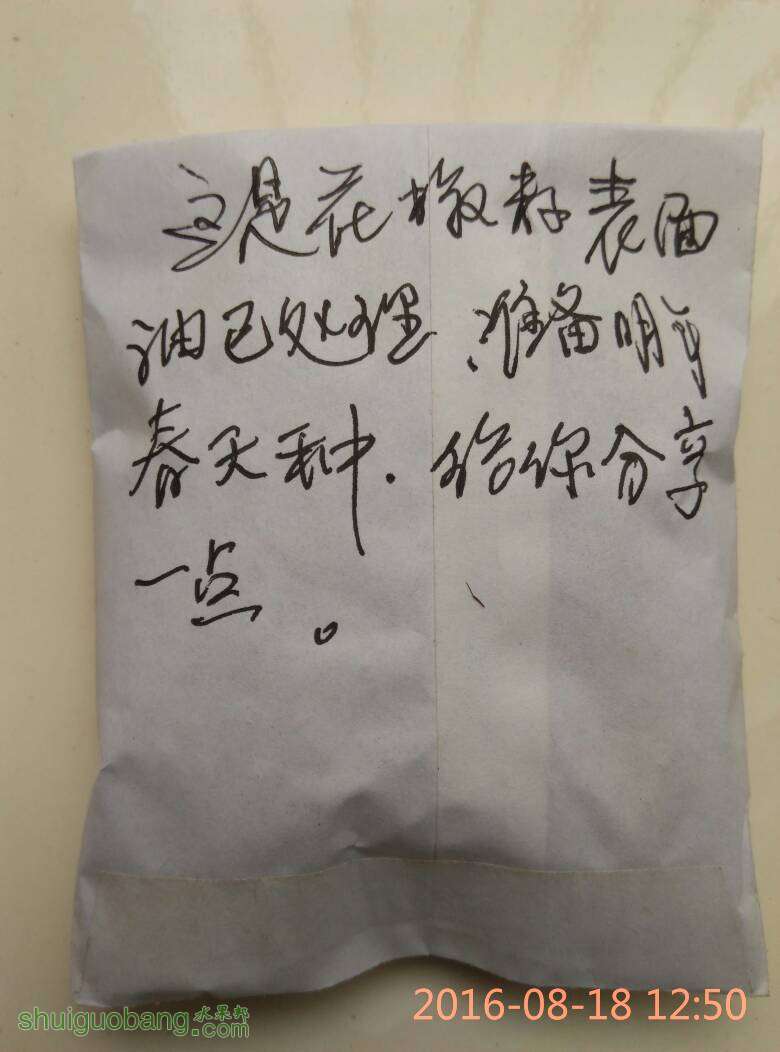 这是花椒籽表面
油已处理、准备明年
春天种.给你分享
一点。
shuiguobang.水果邦
2016-08-18 12:50